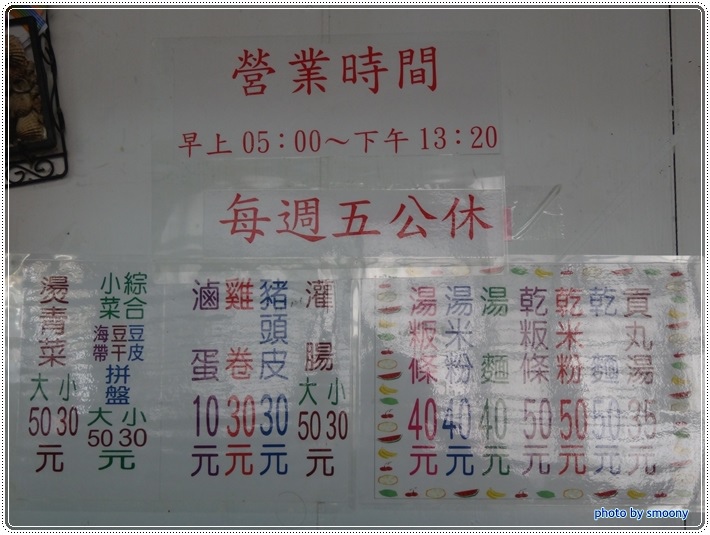 營業時間
早上 05：00～下午 13：20
每週五公休
貢丸湯 35元
乾麵 50元
乾米粉 50元
乾粄條 50元
湯麵 40元
湯米粉 40元
湯粄條 40元
灌腸 大50 小30元
豬頭皮 30元
雞卷 30元
滷蛋 10元
綜合小菜 豆皮 豆干 海帶 拼盤 大50 小30元
燙青菜 大50 小30元
photo by smoony